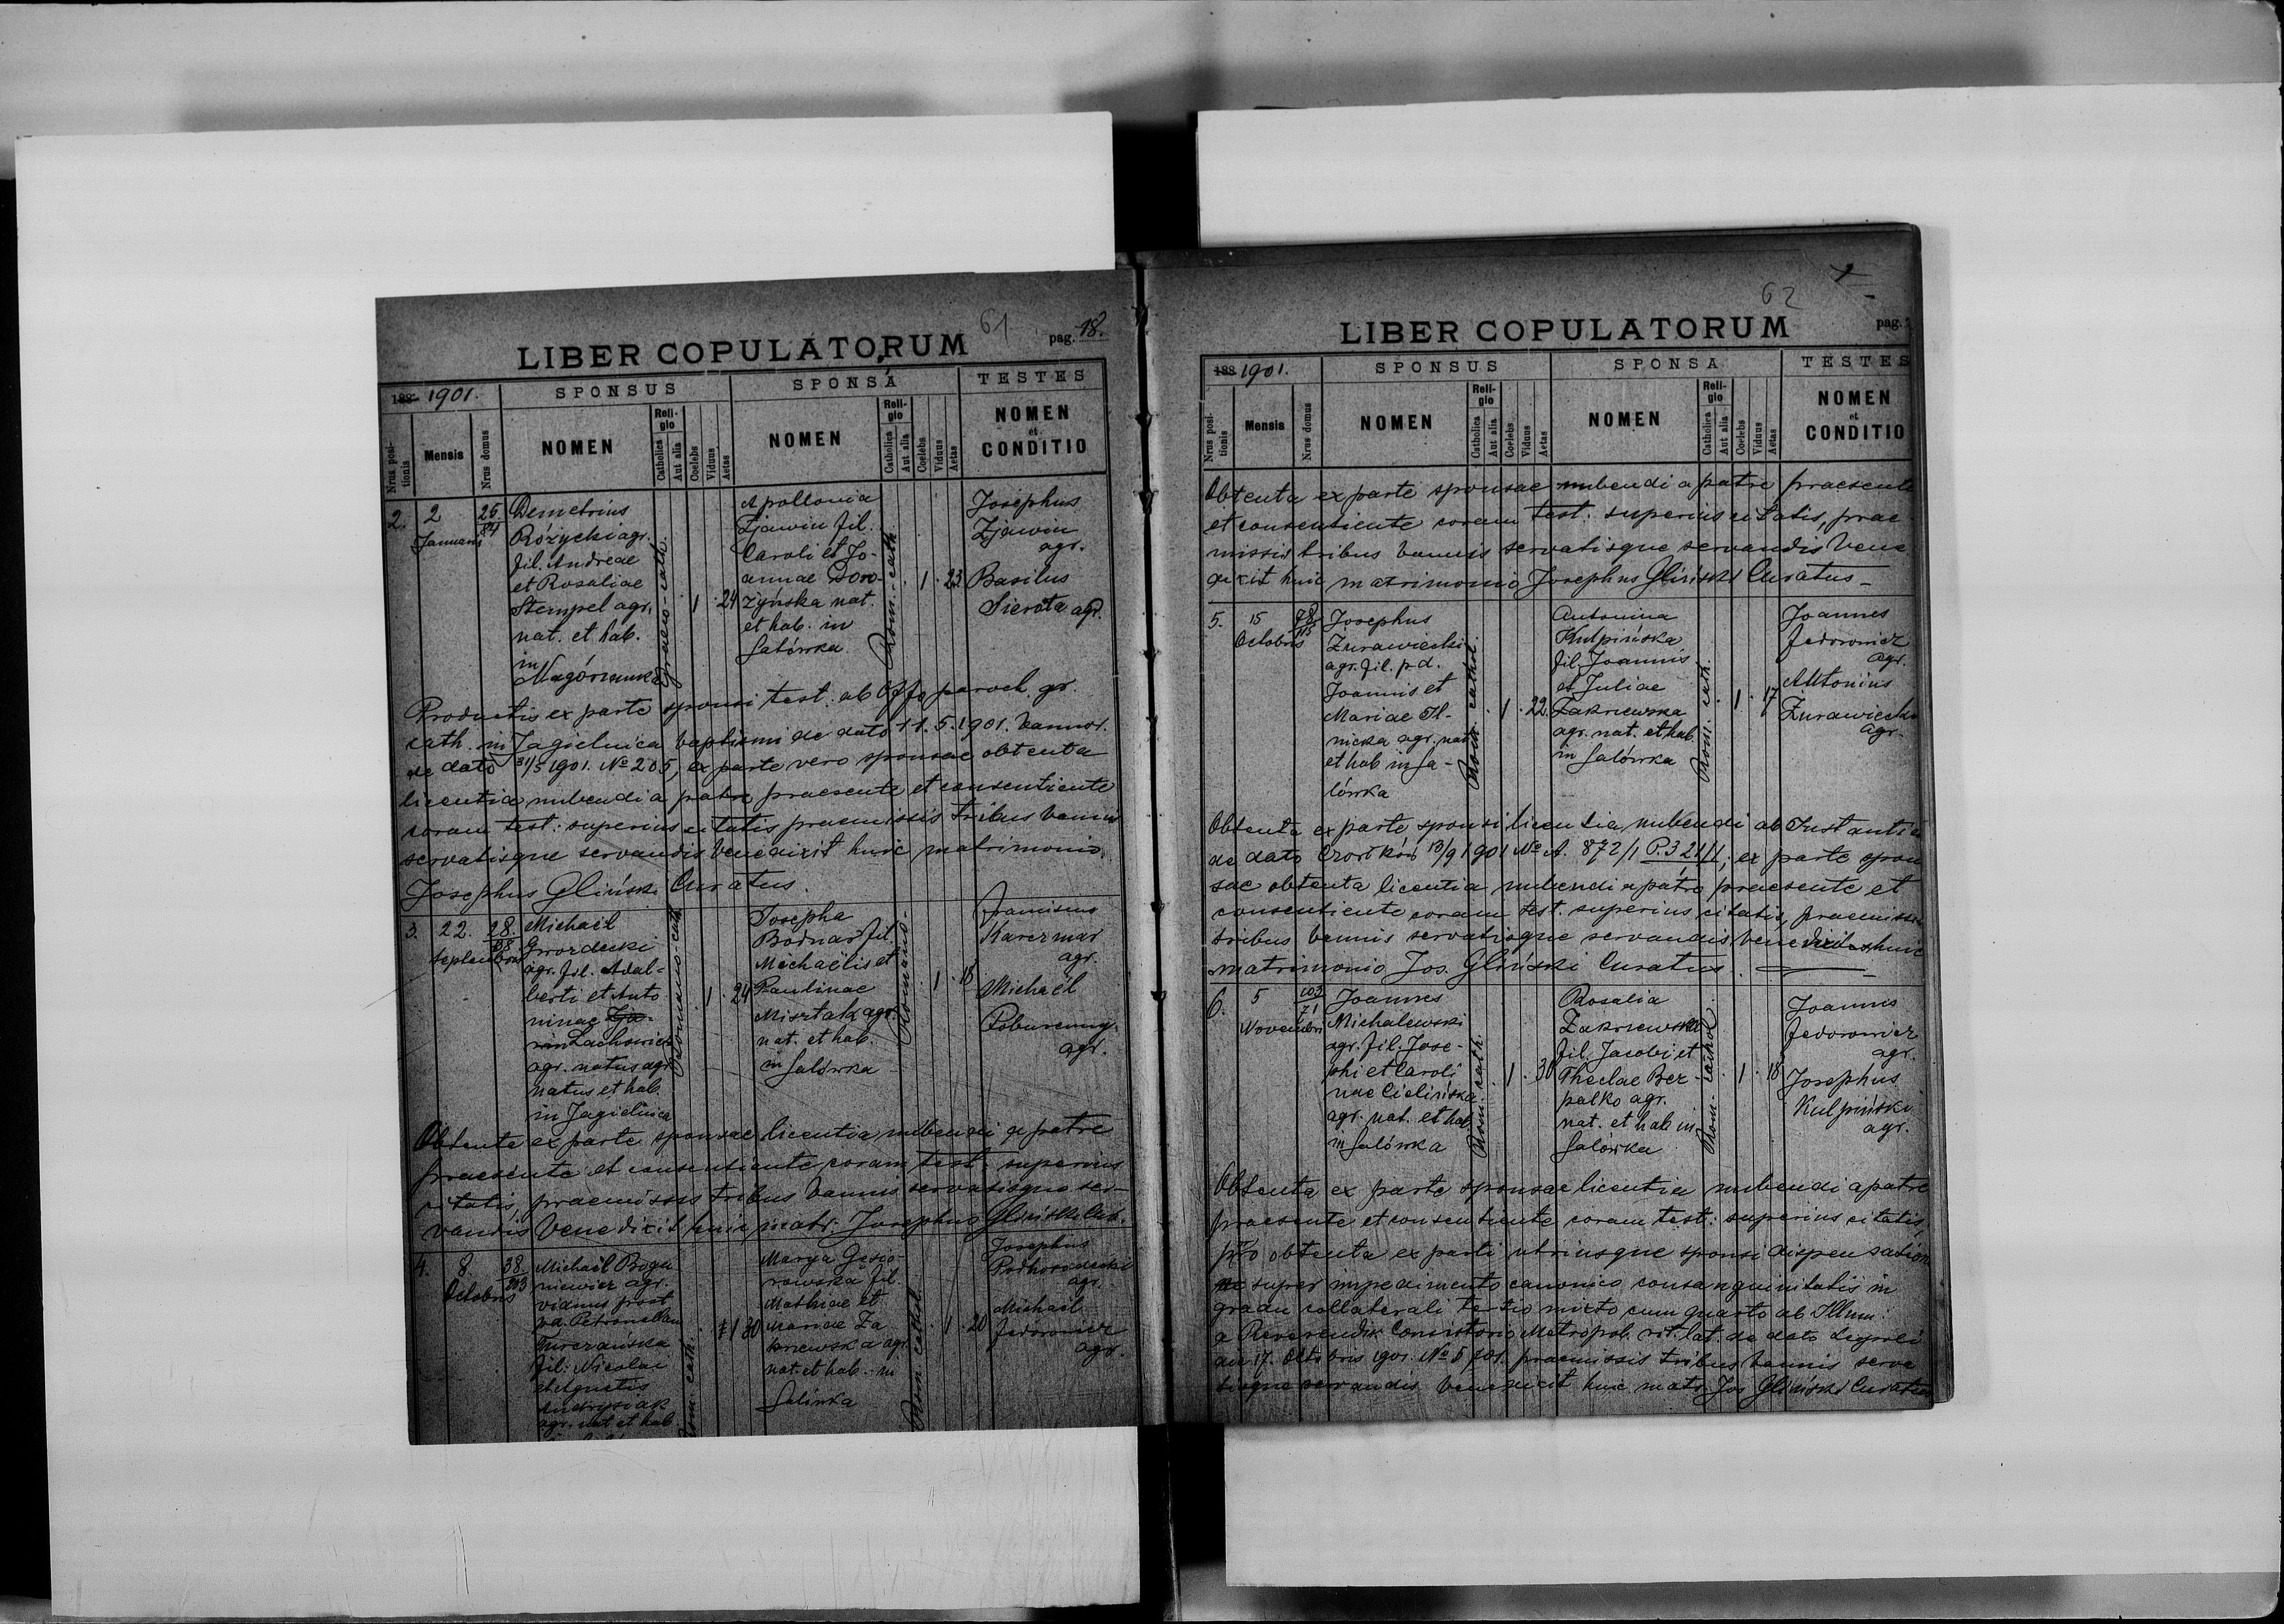 61
pag. 18.
LIBER COPULATORUM
188 1901.
SPONSUS
SPONSA
TESTES
Nrus posi-
tionis
Mensis
Nrus domus
NOMEN
Reli-
gio
Catholica
Aut alia
Coelebs
Viduus
Aetas
NOMEN
Reli-
gio
Catholica
Aut alia
Coelebs
Viduus
Aetas
NOMEN
et
CONDITIO
2. 2
Januarii
25
Demetrius
Różycki agr.
fil. Andreae
et Rosaliae
Stempel agr.
nat. et hab.
in
Nagórzanka
Graeco-cath.
1 24
Apollonia
Zjawin fil.
Caroli et Jo-
annae Doro-
żyńska nat.
et hab. in
Salówka
Rom. cath.
1 23
Josephus
Zjawin
agr.
Basilus
Sierota agr.
Productis ex parte sponsi test. ab Offo paroch. gr.
cath. in Jagielnica baptismi de dato 11.5.1901. bannor.
de dato 31/5 1901. No 205, ex parte vero sponsae obtenta
licentia nubendi a patre praesente et consentiente
coram test: superius citatis praemissis tribus bannis
servatisque servandis benedixit huic matrimonio.
Josephus Gliński Curatus.
3. 22.
Septembris
28.
88
Michaël
Gwozdecki
agr. fil. Adal-
berti et Anto
ninae
Lachowicz
agr. natus agr.
natus et hab.
in Jagielnica
Romano-cath.
1 24
Josepha
Bodnar fil.
Michaëlis et
Paulinae
Misztak agr.
nat. et hab.
in Salówka
Romano-
1 18
Franciscus
Karczmar
agr.
Michaël
Poburenny
agr.
Obtenta ex parte sponsae licentia nubendi a patre
praesente et consentiente coram test: superius
citatis, praemissis tribus bannis servatisque ser-
vandis benedixit huic matr. Josephus Gliński Cur.
4. 8.
Octobris
38
Michaël Bogu
niewicz agr.
viduus post
Petronellam
fil: Nicolai
et Agnetis
Andrysiak
agr. nat et hab.
Rom. cath.
1 30
Marya Gąsio-
rowska fil.
Mathiae et
Mariae Za
krzewska agr.
nat. et hab. in
Salówka
Rom. cathol.
1 20
Josephus
Podhorodecki
agr.
Michaël
Fedorowicz
agr.
62
pag.
LIBER COPULATORUM
188 1901.
SPONSUS
SPONSA
TESTES
Nrus posi-
tionis
Mensis
Nrus domus
NOMEN
Reli-
gio
Catholica
Aut alia
Coelebs
Viduus
Aetas
NOMEN
Reli-
gio
Catholica
Aut alia
Coelebs
Viduus
Aetas
NOMEN
et
CONDITIO
Obtenta ex parte sponsae nubendi a patre praesente
et consentiente coram test: superius citatis, prae
missis tribus bannis servatisque servandis bene
dixit huic matrimonio Josephus Gliński Curatus
5. 15
Octobris
78
115
Josephus
Żurawiecki
agr. fil. p.d.
Joannis et
Mariae Il-
nicka agr. nat
et hab in Sa-
lówka
Rom. cathol.
1 22.
Antonina
Kulpińska
fil. Joannis
et Juliae
Zakrzewska
agr. nat. et hab
in Salówka
Rom. cath.
1 17
Joannes
Fedorowicz
agr.
Antonius
Żurawiecki
agr.
Obtenta ex parte sponsi licentia nubendi ab Instantia
de dato Czortków 13/9 1901 No A. 872/1 P.321/1; ex parte spon
sae obtenta licentia nubendi a patre praesente et
consentiente coram test. superius citatis, praemissis
tribus bannis servatisque servandis benedixit huic
matrimonio Jos. Gliński Curatus.
6. 5
Novembris
103
71
Joannes
Michalewski
agr. fil. Jose-
phi et Caroli
nae Cielińska
agr. nat. et hab.
in Salówka
Rom. cath.
1 30
Rosalia
Zakrzewska
fil. Jacobi et
Theclae Ber-
palko agr.
nat. et hab in
Salówka
Rom. cathol.
1 18
Joannes
Fedorowicz
agr.
Josephus
Kulpiński
agr.
Obtenta ex parte sponsae licentia nubendi a patre
praesente et consentiente coram test: superius citatis,
pro obtenta ex parti utriusque sponsi dispensation
super impedimento canonico consanguinitatis in
gradu collaterali tertio mixto cum quarto ab Illmi:
a Reverendis. Consistorio Metropol. rit. lat. de dato Leopoli
die 17. Octobris 1901. No praemissis tribus bannis serva
tisque servandis benedixit huic matr. Jos Gliński Curatus